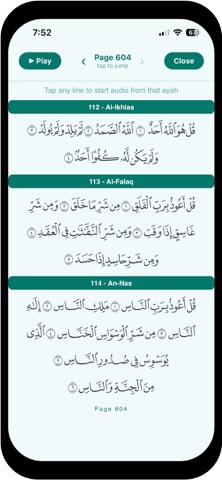 7:52
67
Play
Page 604
tap to jump
Close
Tap any line to start audio from that ayah
112 - Al-Ikhlas
قُلْ هُوَ ٱللَّهُ أَحَدٌ ١ ٱللَّهُ ٱلصَّمَدُ ٢ لَمْ يَلِدْ وَلَمْ يُولَدْ ٣
وَلَمْ يَكُن لَّهُۥ كُفُوًا أَحَدٌۢ ٤
113 - Al-Falaq
قُلْ أَعُوذُ بِرَبِّ ٱلْفَلَقِ ١ مِن شَرِّ مَا خَلَقَ ٢ وَمِن شَرِّ
غَاسِقٍ إِذَا وَقَبَ ٣ وَمِن شَرِّ ٱلنَّفَّٰثَٰتِ فِى ٱلْعُقَدِ ٤
وَمِن شَرِّ حَاسِدٍ إِذَا حَسَدَ ٥
114 - An-Nas
قُلْ أَعُوذُ بِرَبِّ ٱلنَّاسِ ١ مَلِكِ ٱلنَّاسِ ٢ إِلَٰهِ
ٱلنَّاسِ ٣ مِن شَرِّ ٱلْوَسْوَاسِ ٱلْخَنَّاسِ ٤ ٱلَّذِى
يُوَسْوِسُ فِى صُدُورِ ٱلنَّاسِ ٥
مِنَ ٱلْجِنَّةِ وَٱلنَّاسِ ٦
Page 604